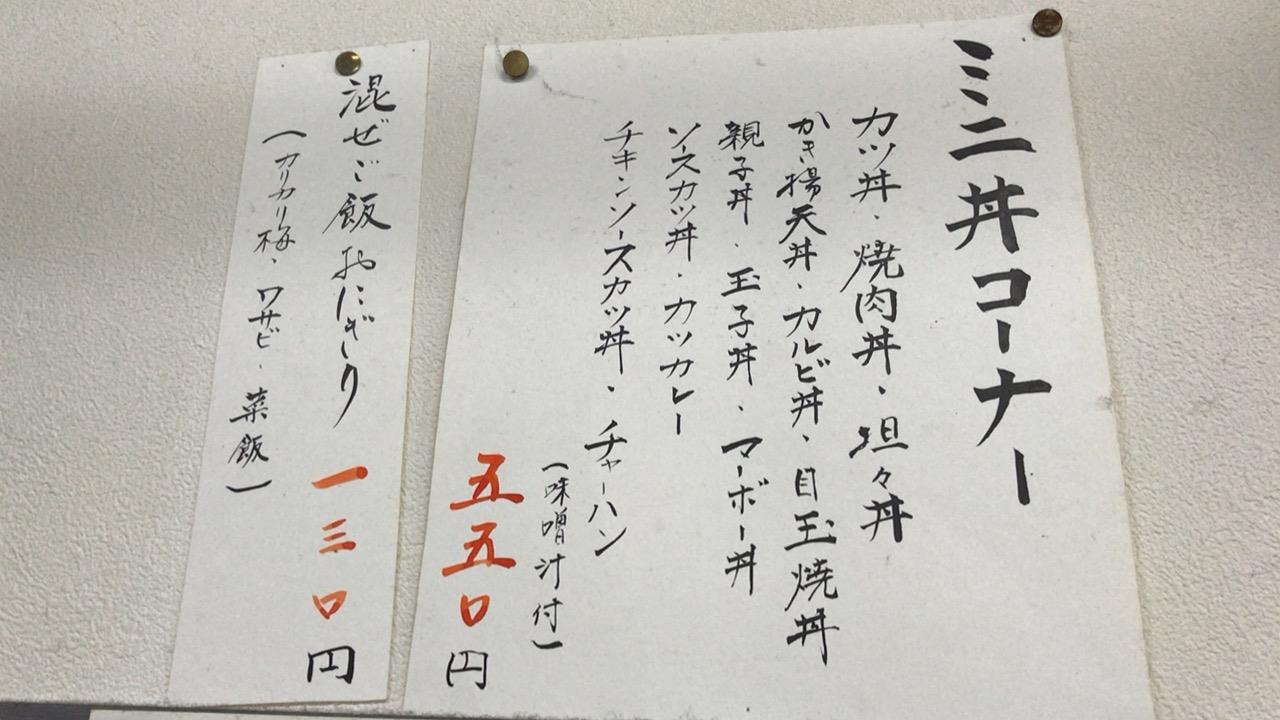 ミニ丼コーナー
カツ丼・焼肉丼・坦々丼
かき揚天丼・カルビ丼・目玉焼丼
親子丼・玉子丼・マーボー丼
ソースカツ丼・カツカレー
チキンソースカツ丼・チャーハン
(味噌汁付)
五五〇円
混ぜご飯おにぎり
一三〇円
(カリカリ梅・ワサビ・菜飯)